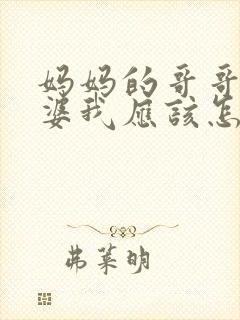 妈妈的哥哥
婆我应该怎
弗莱明